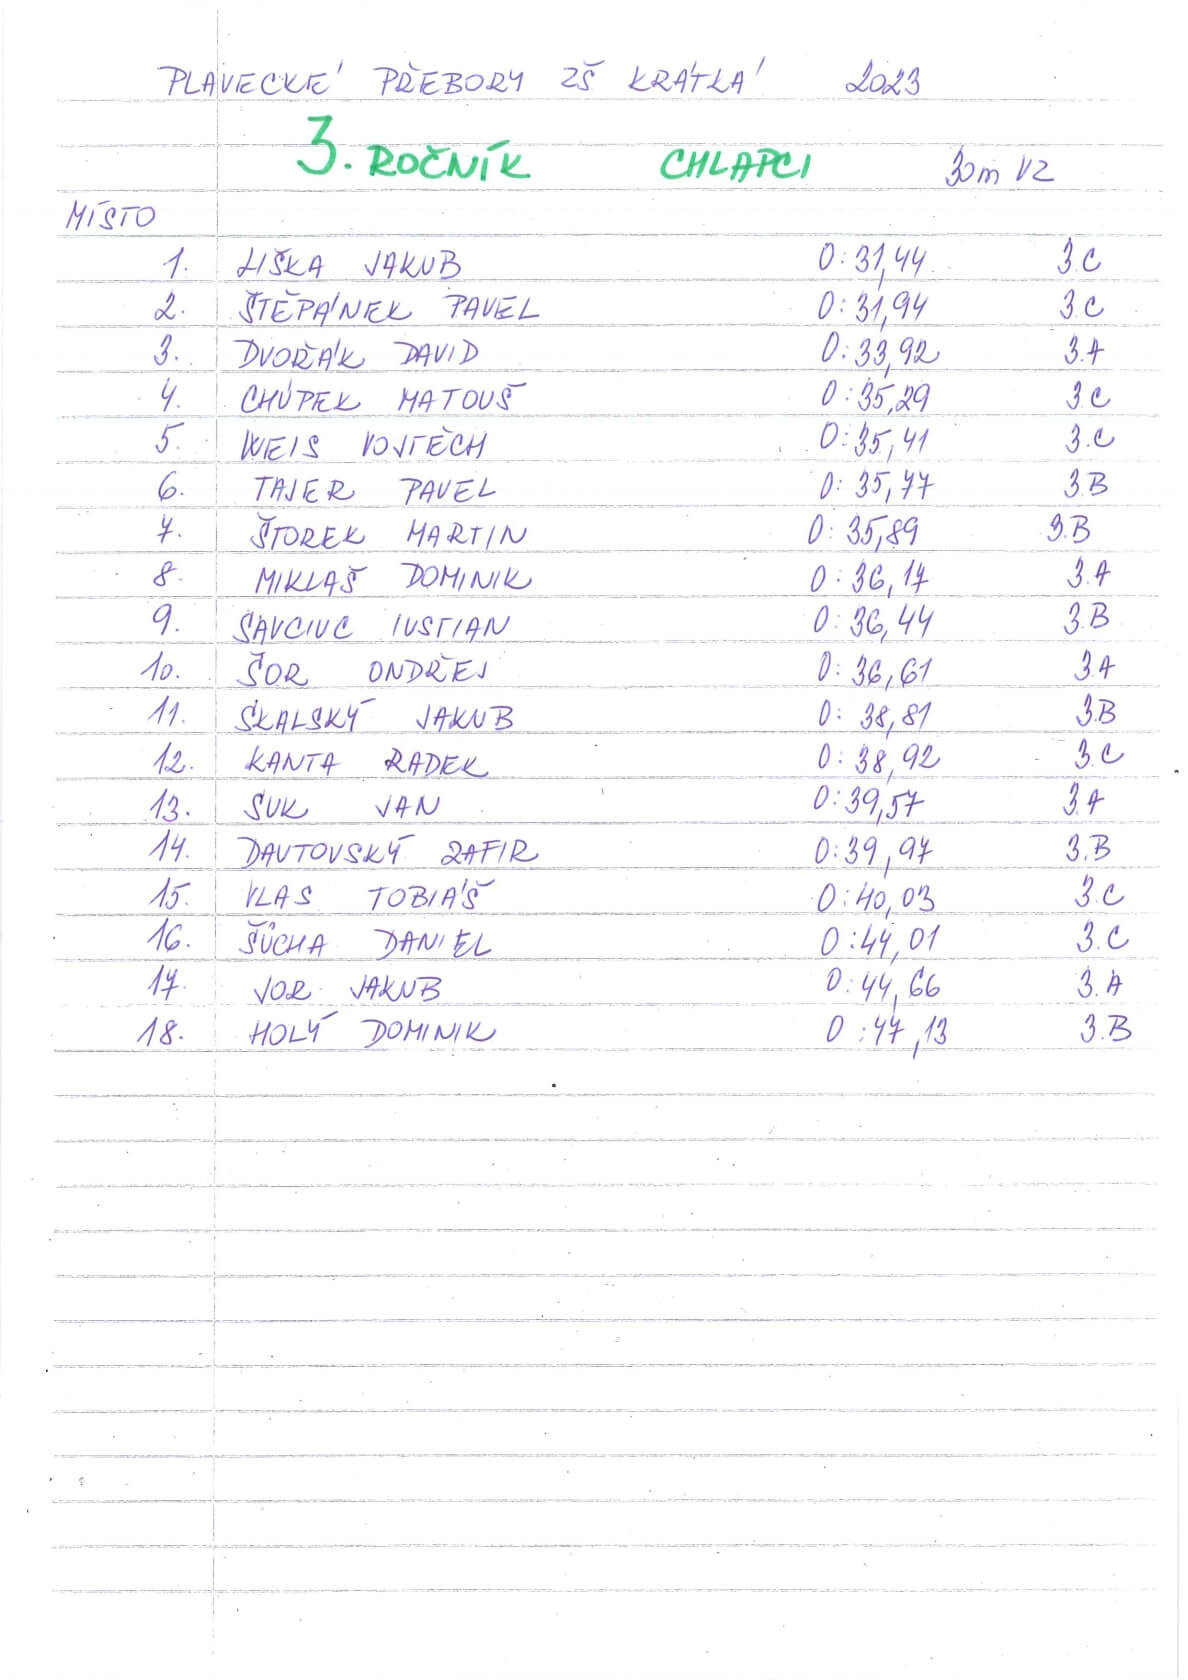 PLAVECKÉ PŘEBORY ZŠ KRÁTKÁ 2023
3. ROČNÍK CHLAPCI 30m VZ
MÍSTO
1. LIŠKA JAKUB 0:31,44 3.C
2. ŠTĚPÁNEK PAVEL 0:31,94 3.C
3. DVOŘÁK DAVID 0:33,92 3.A
4. CHŮPEK MATOUŠ 0:35,29 3.C
5. WEIS VOJTĚCH 0:35,41 3.C
6. TAJER PAVEL 0:35,77 3.B
7. ŠTOREK MARTIN 0:35,89 3.B
8. MIKLAŠ DOMINIK 0:36,17 3.A
9. SAVCIUC IUSTIAN 0:36,44 3.B
10. ŠOR ONDŘEJ 0:36,61 3.A
11. SKALSKÝ JAKUB 0:38,81 3.B
12. KANTA RADEK 0:38,92 3.C
13. SUK JAN 0:39,57 3.A
14. DAVTOVSKÝ ZAFIR 0:39,97 3.B
15. VLAS TOBIÁŠ 0:40,03 3.C
16. ŠŮCHA DANIEL 0:44,01 3.C
17. JOR JAKUB 0:44,66 3.A
18. HOLÝ DOMINIK 0:47,13 3.B